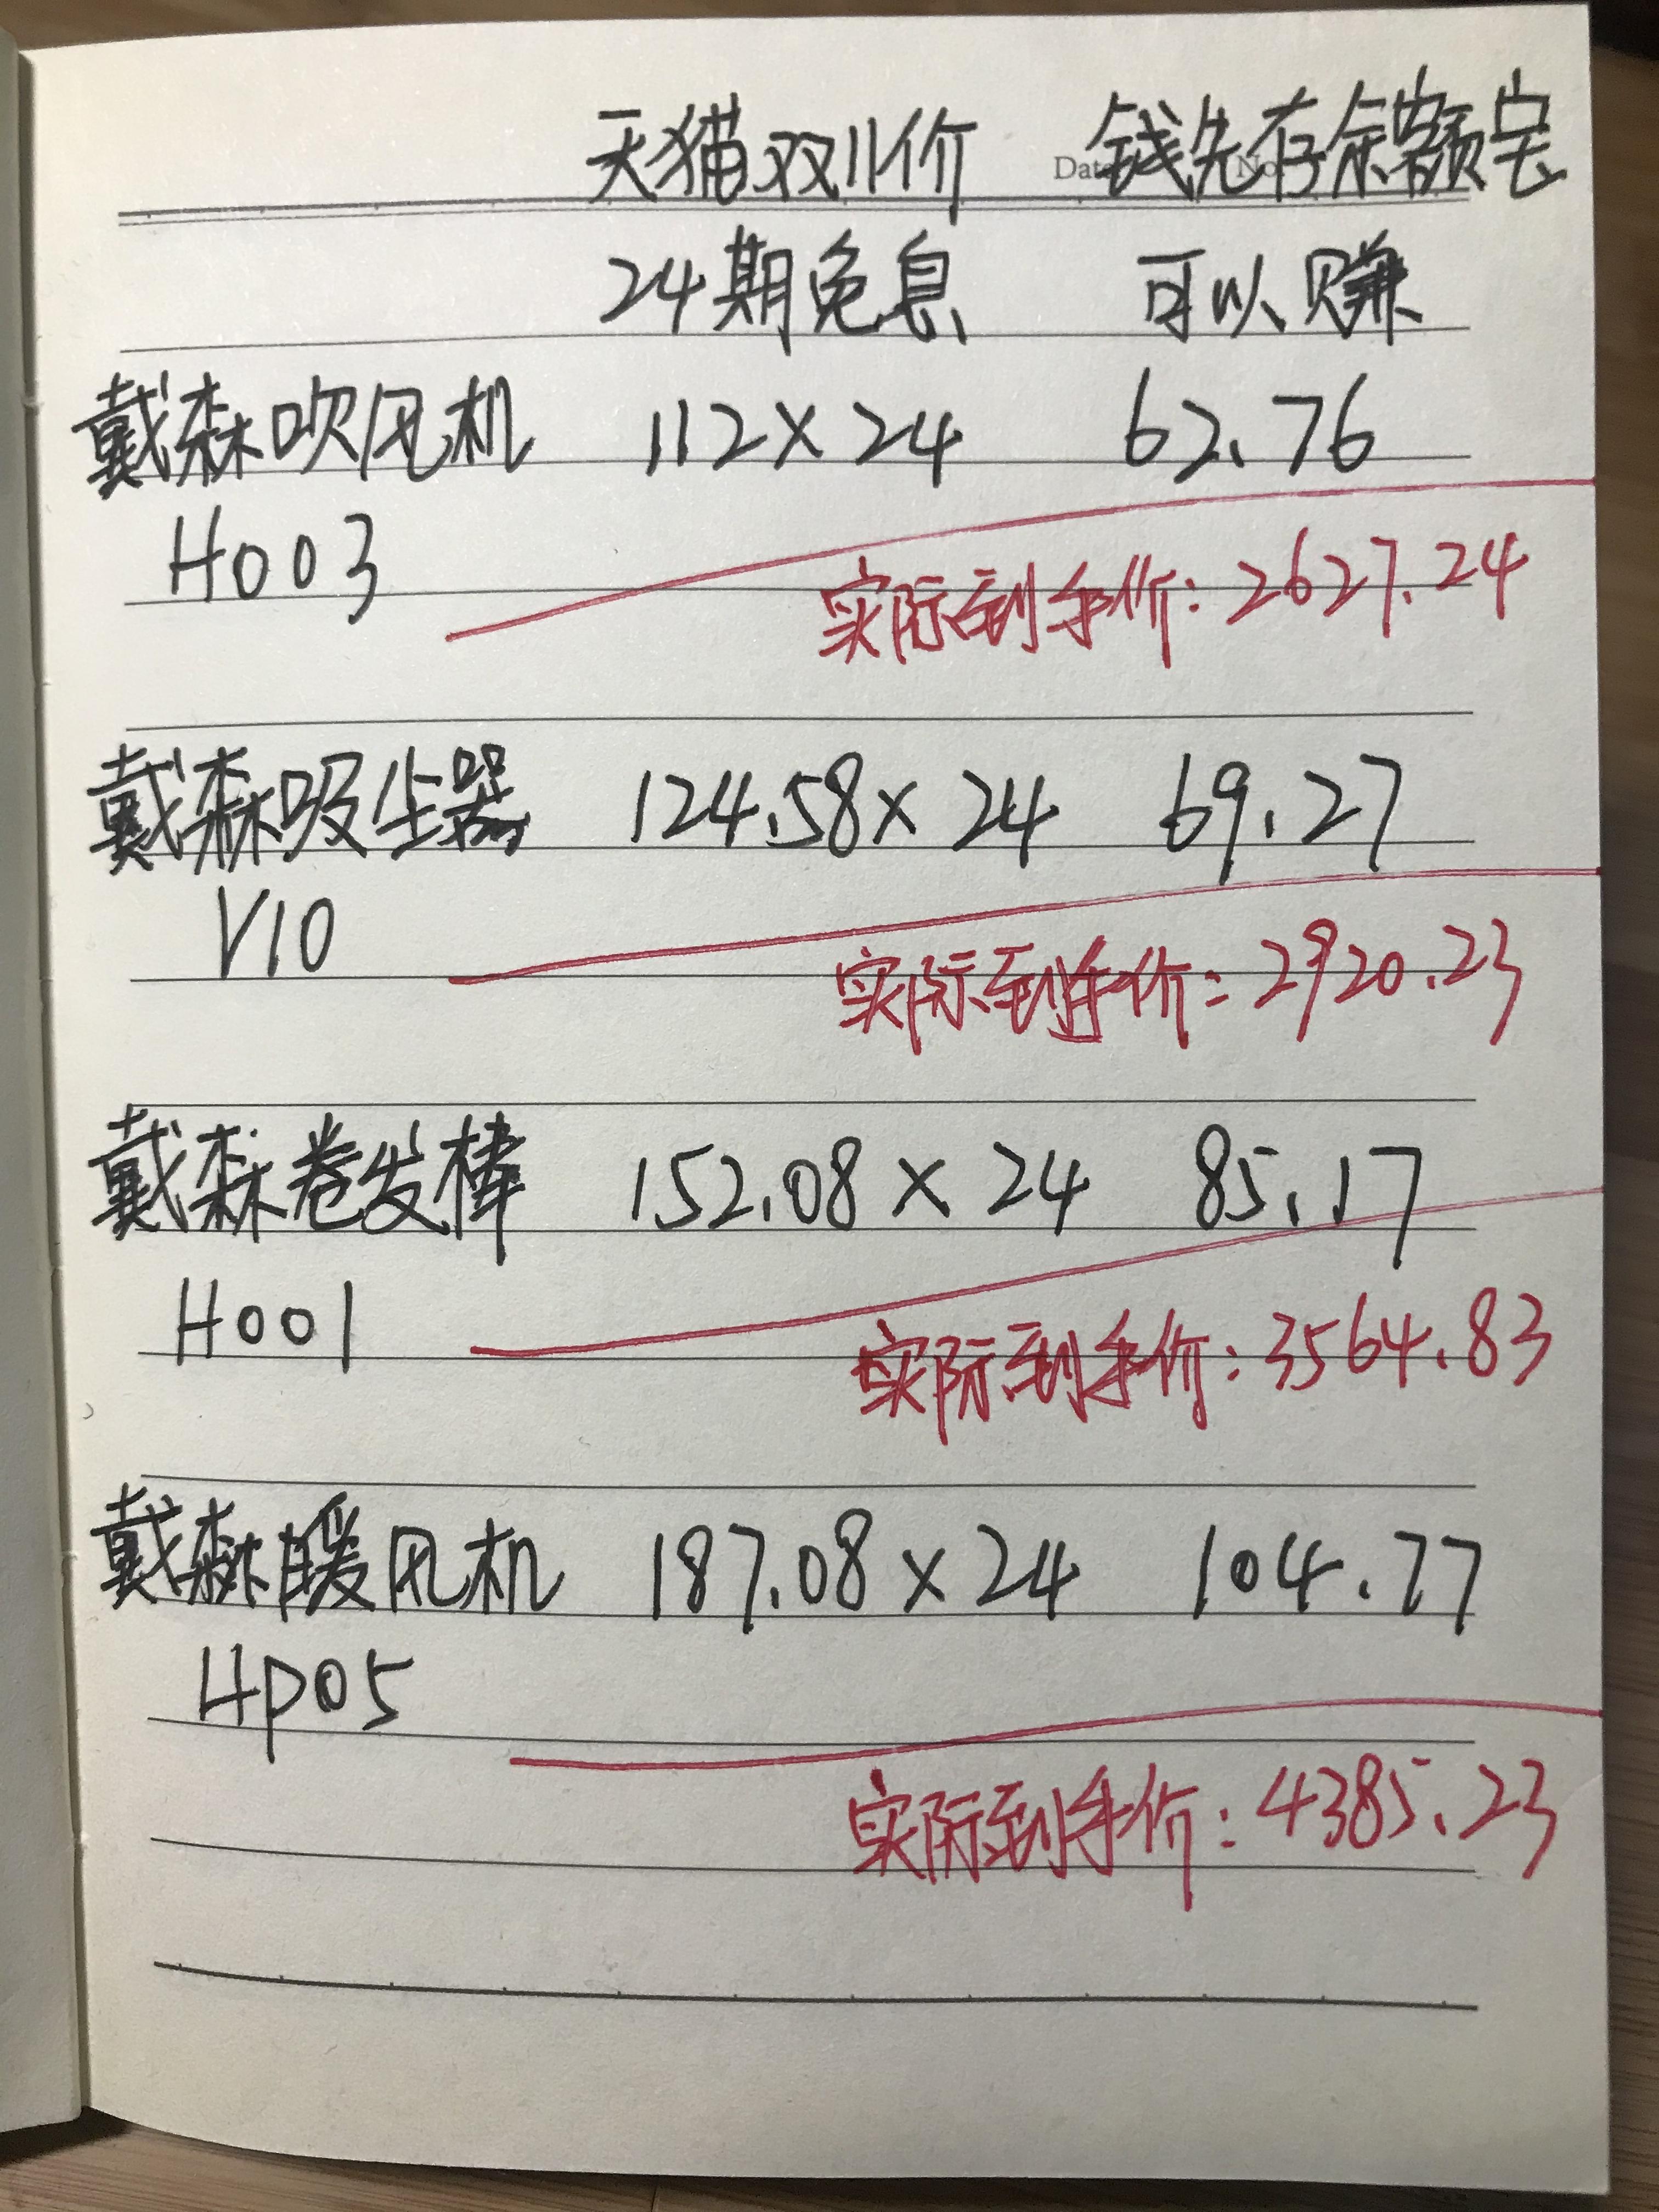 天猫双11价 钱先存余额宝
Date No
24期免息 可以赚
戴森吹风机 112×24 62.76
H003
实际到手价：2627.24
戴森吸尘器 124.58×24 69.27
V10
实际到手价：2920.23
戴森卷发棒 152.08×24 85.17
H001
实际到手价：3564.83
戴森暖风机 187.08×24 104.77
Hp05
实际到手价：4385.23